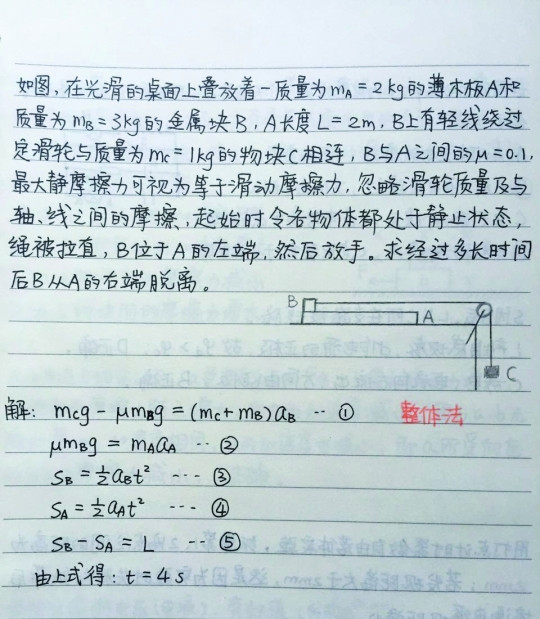 如图，在光滑的桌面上叠放着一质量为mA=2kg的薄木板A和
质量为mB=3kg的金属块B，A长度L=2m，B上有轻线绕过
定滑轮与质量为mc=1kg的物块C相连，B与A之间的μ=0.1，
最大静摩擦力可视为等于滑动摩擦力，忽略滑轮质量及与
轴、线之间的摩擦，起始时令各物体都处于静止状态，
绳被拉直，B位于A的左端，然后放手。求经过多长时间
后B从A的右端脱离。
B
A
C
解：mcg－μmBg＝(mc+mB)aB ·· ① 整体法
μmBg＝mAaA ·· ②
SB＝½aBt² ··· ③
SA＝½aAt² ··· ④
SB－SA＝L ·· ⑤
由上式得：t＝4s